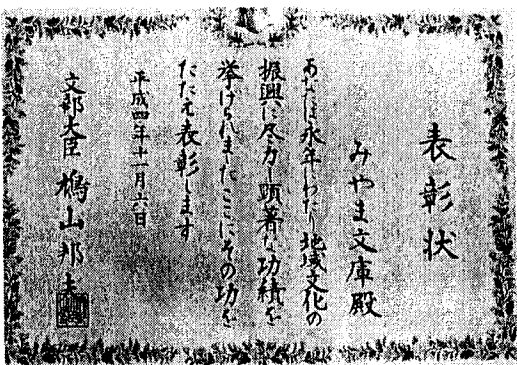 表彰状
みやま文庫殿
あなたは永年にわたり地域文化の
振興に尽力し顕著な功績を
挙げられましたここにその功を
たたえ表彰します
平成四年十一月六日
文部大臣 鳩山邦夫